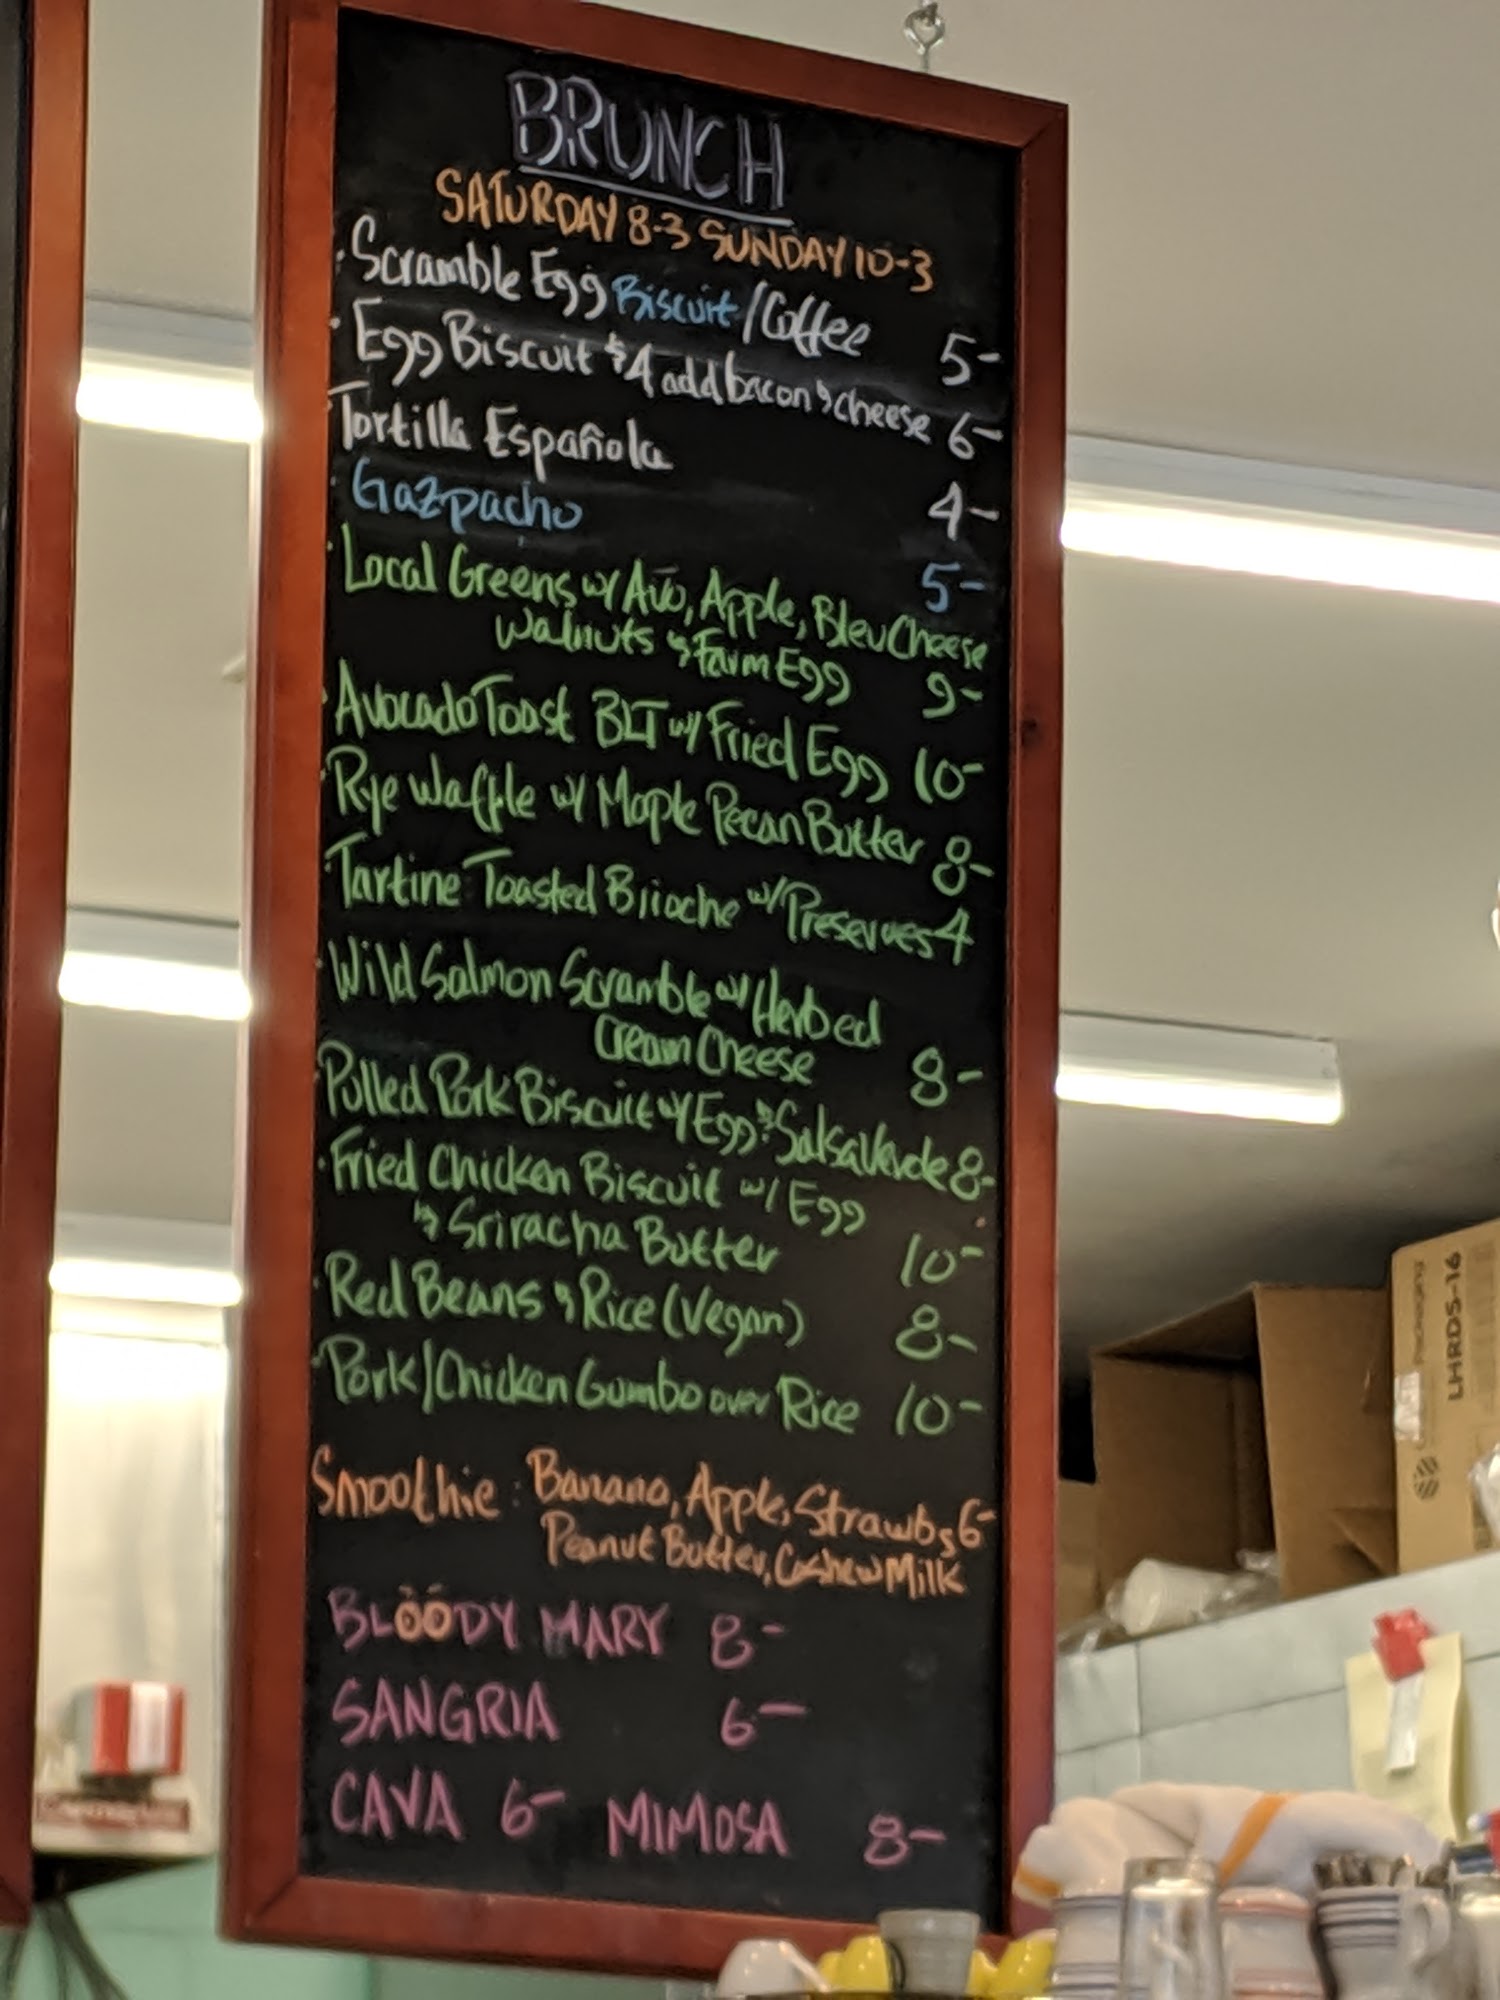 BRUNCH
SATURDAY 8-3 SUNDAY 10-3
·Scramble Egg Biscuit/Coffee 5-
·Egg Biscuit $4 add bacon & cheese 6-
Tortilla Española 4-
·Gazpacho 5-
·Local Greens w/ Avo, Apple, Bleu Cheese
Walnuts & Farm Egg 9-
·Avocado Toast BLT w/ Fried Egg 10-
·Rye Waffle w/ Maple Pecan Butter 8-
·Tartine Toasted Brioche w/ Preserves 4
·Wild Salmon Scramble w/ Herbed
Cream Cheese 8-
·Pulled Pork Biscuit w/ Egg & Salsa Verde 8-
·Fried Chicken Biscuit w/ Egg
& Sriracha Butter 10-
·Red Beans & Rice (Vegan) 8-
·Pork/Chicken Gumbo over Rice 10-
Smoothie: Banana, Apple, Strawbs 6-
Peanut Butter, Cashew Milk
BLÖÖDY MARY 8-
SANGRIA 6-
CAVA 6- MIMOSA 8-
Packaging
LHRDS-16